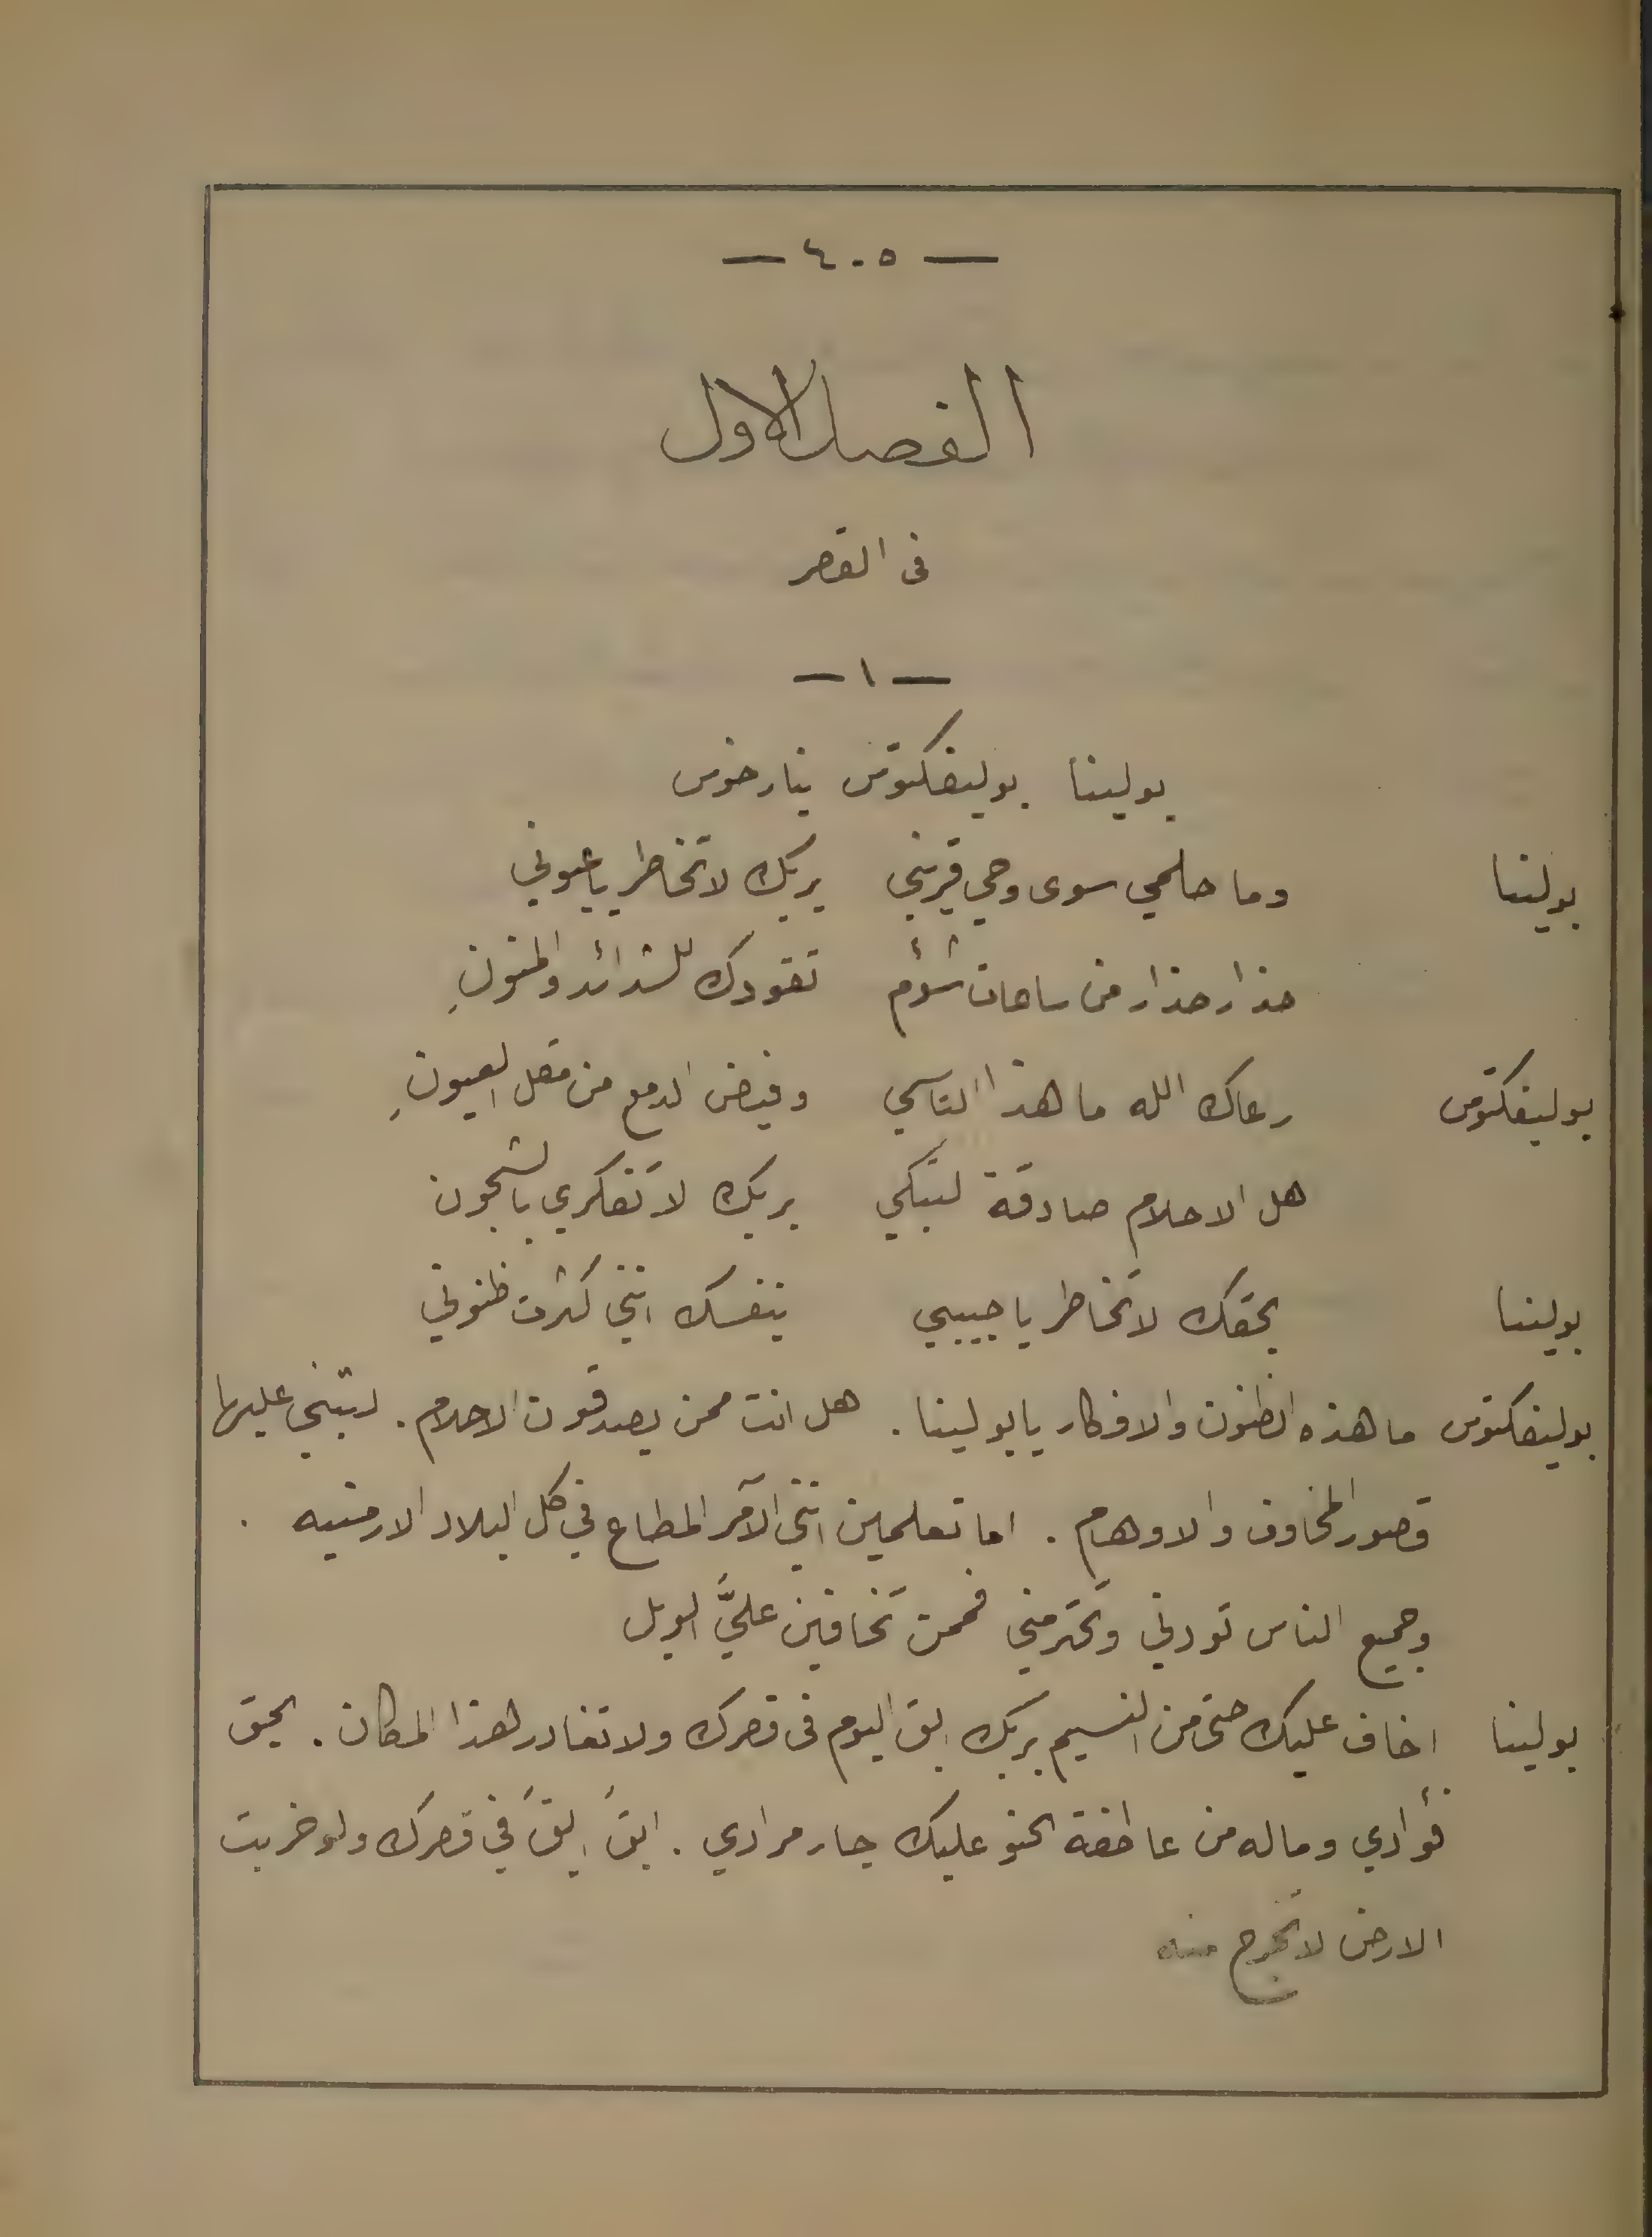 — ٤٠٥ —
الفصل الاول
فى القصر
— ١ —
بولينا بوليفكتوس ينارخوس
بولينا وما حلمي سوى وحي قريني بربك لا تخاطر يا عيوني
حذار حذار من ساعات شؤم تقودك للشدائد والمنونِ
بوليفكتوس رعاك الله ما هذا التاسي وفيض الدمع من مقل العيونِ
هل الاحلام صادقة لتبكي بربك لا تفكري بالشجون
بولينا بحقك لا تخاطر يا حبيبي بنفسك انني كثرت ظنوني
بوليفكتوس ما هذه الظنون والافكار يا بولينا . هل انت ممن يصدقون الاحلام . لتبني عليها
قصور المخاوف والاوهام . اما تعلمين انني الآمر المطاع في كل البلاد الارمنيه .
وجميع الناس تودني وتحترمني فممن تخافين عليَّ الويل
بولينا اخاف عليك حتى من النسيم بربك ابق اليوم فى قصرك ولا تغادر هذا المكان . بحق
فؤادي وماله من عاطفة الحنو عليك جار مرادي . ابقَ ابقَ في قصرك ولو خربت
الارض لا تخرج منه